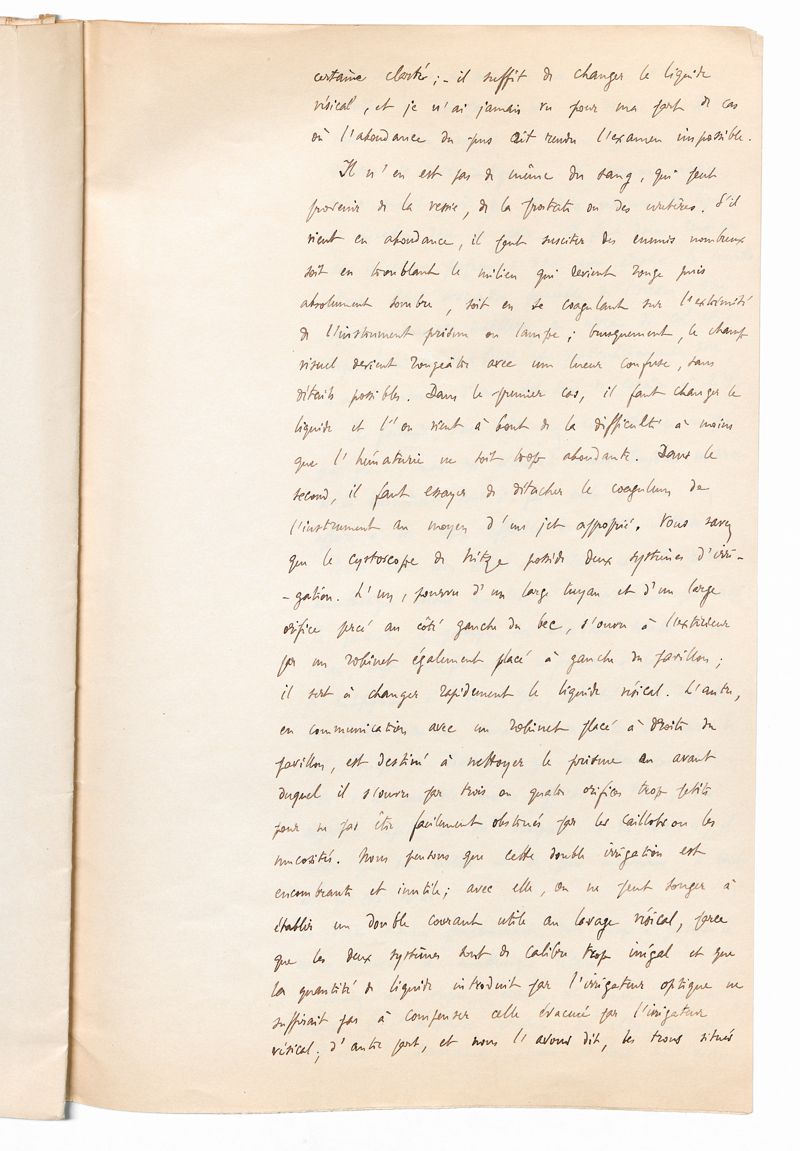 certaine clarté ; - il suffit de changer le liquide
vésical, et je n'ai jamais vu pour ma part de cas
où l'abondance du pus ait rendu l'examen impossible.
Il n'en est pas de même du sang, qui peut
provenir de la vessie, de la prostate ou des uretères. S'il
vient en abondance, il peut susciter des ennuis nombreux
soit en troublant le milieu qui devient rouge puis
absolument sombre, soit en se coagulant sur l'extrémité
de l'instrument prisme ou lampe ; brusquement, le champ
visuel devient rougeâtre avec une lueur confuse, sans
détails possibles. Dans le premier cas, il faut changer le
liquide et l'on vient à bout de la difficulté à moins
que l'hématurie ne soit trop abondante. Dans le
second, il faut essayer de détacher le coagulum de
l'instrument au moyen d'un jet approprié. Vous savez
que le cystoscope de Nitze possède deux systèmes d'irri-
-gation. L'un, pourvu d'un large tuyau et d'un large
orifice percé au côté gauche du bec, s'ouvre à l'extérieur
par un robinet également placé à gauche du pavillon ;
il sert à changer rapidement le liquide vésical. L'autre,
en communication avec un robinet placé à droite du
pavillon, est destiné à nettoyer le prisme en avant
duquel il s'ouvre par trois ou quatre orifices trop petits
pour ne pas être facilement obstrués par les caillots ou les
mucosités. Nous pensons que cette double irrigation est
encombrante et inutile ; avec elle, on ne peut songer à
établir un double courant utile au lavage vésical, parce
que les deux systèmes sont de calibre trop inégal et que
la quantité de liquide introduit par l'irrigateur optique ne
suffirait pas à compenser celle évacuée par l'irrigateur
vésical ; d'autre part, et nous l'avons dit, les trous situés